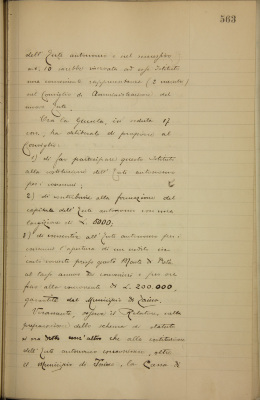 563
dell'Ente autonomo e nel consiglio
una conveniente rappresentanza (2 membri)
nel Consiglio di Amministrazione del
nuovo Ente.
Che la Giunta, in seduta 17
corr., ha deliberato di proporre al
Consiglio:
1) di far partecipare questo Istituto
alla costituzione dell'Ente autonomo
per i consumi;
2) di contribuire alla formazione del
capitale dell'Ente autonomo con una
di L. 5000;
3) di consentire all'Ente autonomo per i
consumi l'apertura di un credito in
conto corrente presso questo Monte di Pietà
al tasso annuo da convenirsi e per una
fino alla concorrenza di L. 200.000,
garantito dal Municipio di
Veramente, osserva il Relatore, nella
preparazione dello schema di statuto
si era detto che alla costituzione
dell'Ente autonomo concorressero, oltre
il Municipio di la Cassa di